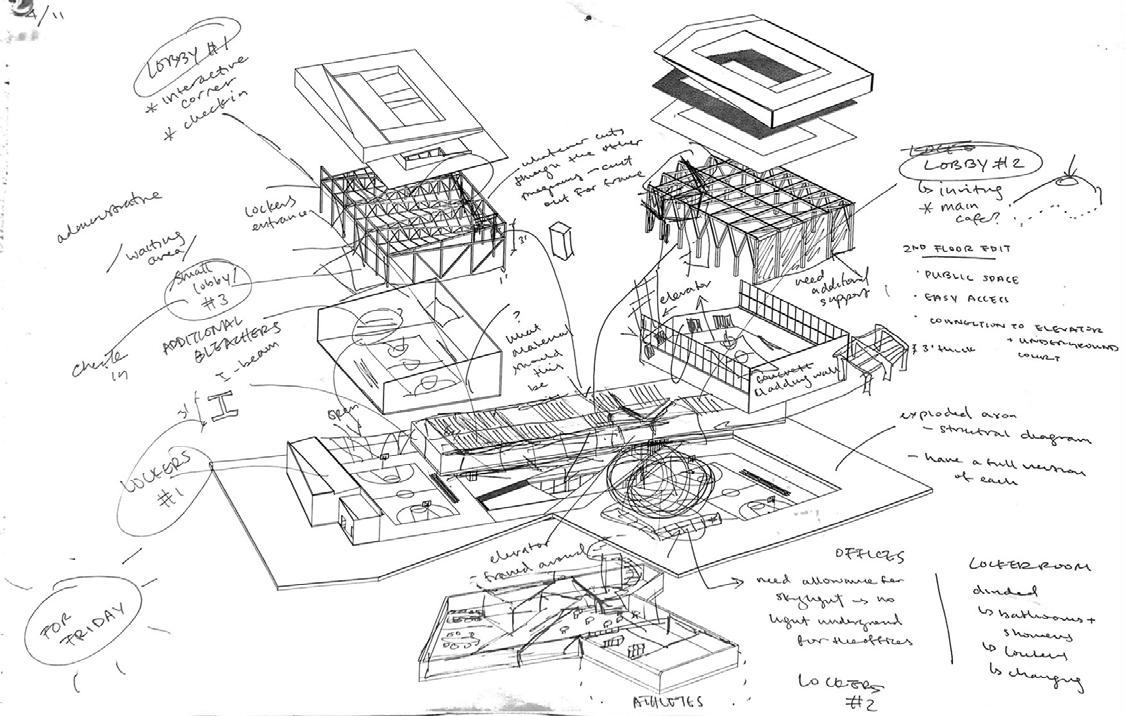 4/11
LOBBY #1
* interactive
corner
* check in
administrative
waiting
area
small
lobby
#3
check
in
Lockers
entrance
ADDITIONAL
BLEACHERS
I-beam
LOCKERS
#1
FOR
FRIDAY
open
whatever cuts
through the other
program - cut
out for frame
?
what
material
should
this
be
elevator
need additional
support
concrete
cladding wall
LOBBY #2
↳ inviting
* main
cafe?
2ND FLOOR EDIT
· PUBLIC SPACE
· EASY ACCESS
· CONNECTION TO ELEVATOR
+ UNDERGROUND
COURT
3' thick
exploded axon
- structural diagram
- have a full version
of each
elevator
framed around
OFFICES
need allowance for
skylight → no
light underground
for the offices
LOCKERS
#2
ATHLETES
LOCKER ROOM
divided
↳ bathrooms +
showers
↳ lockers
↳ changing